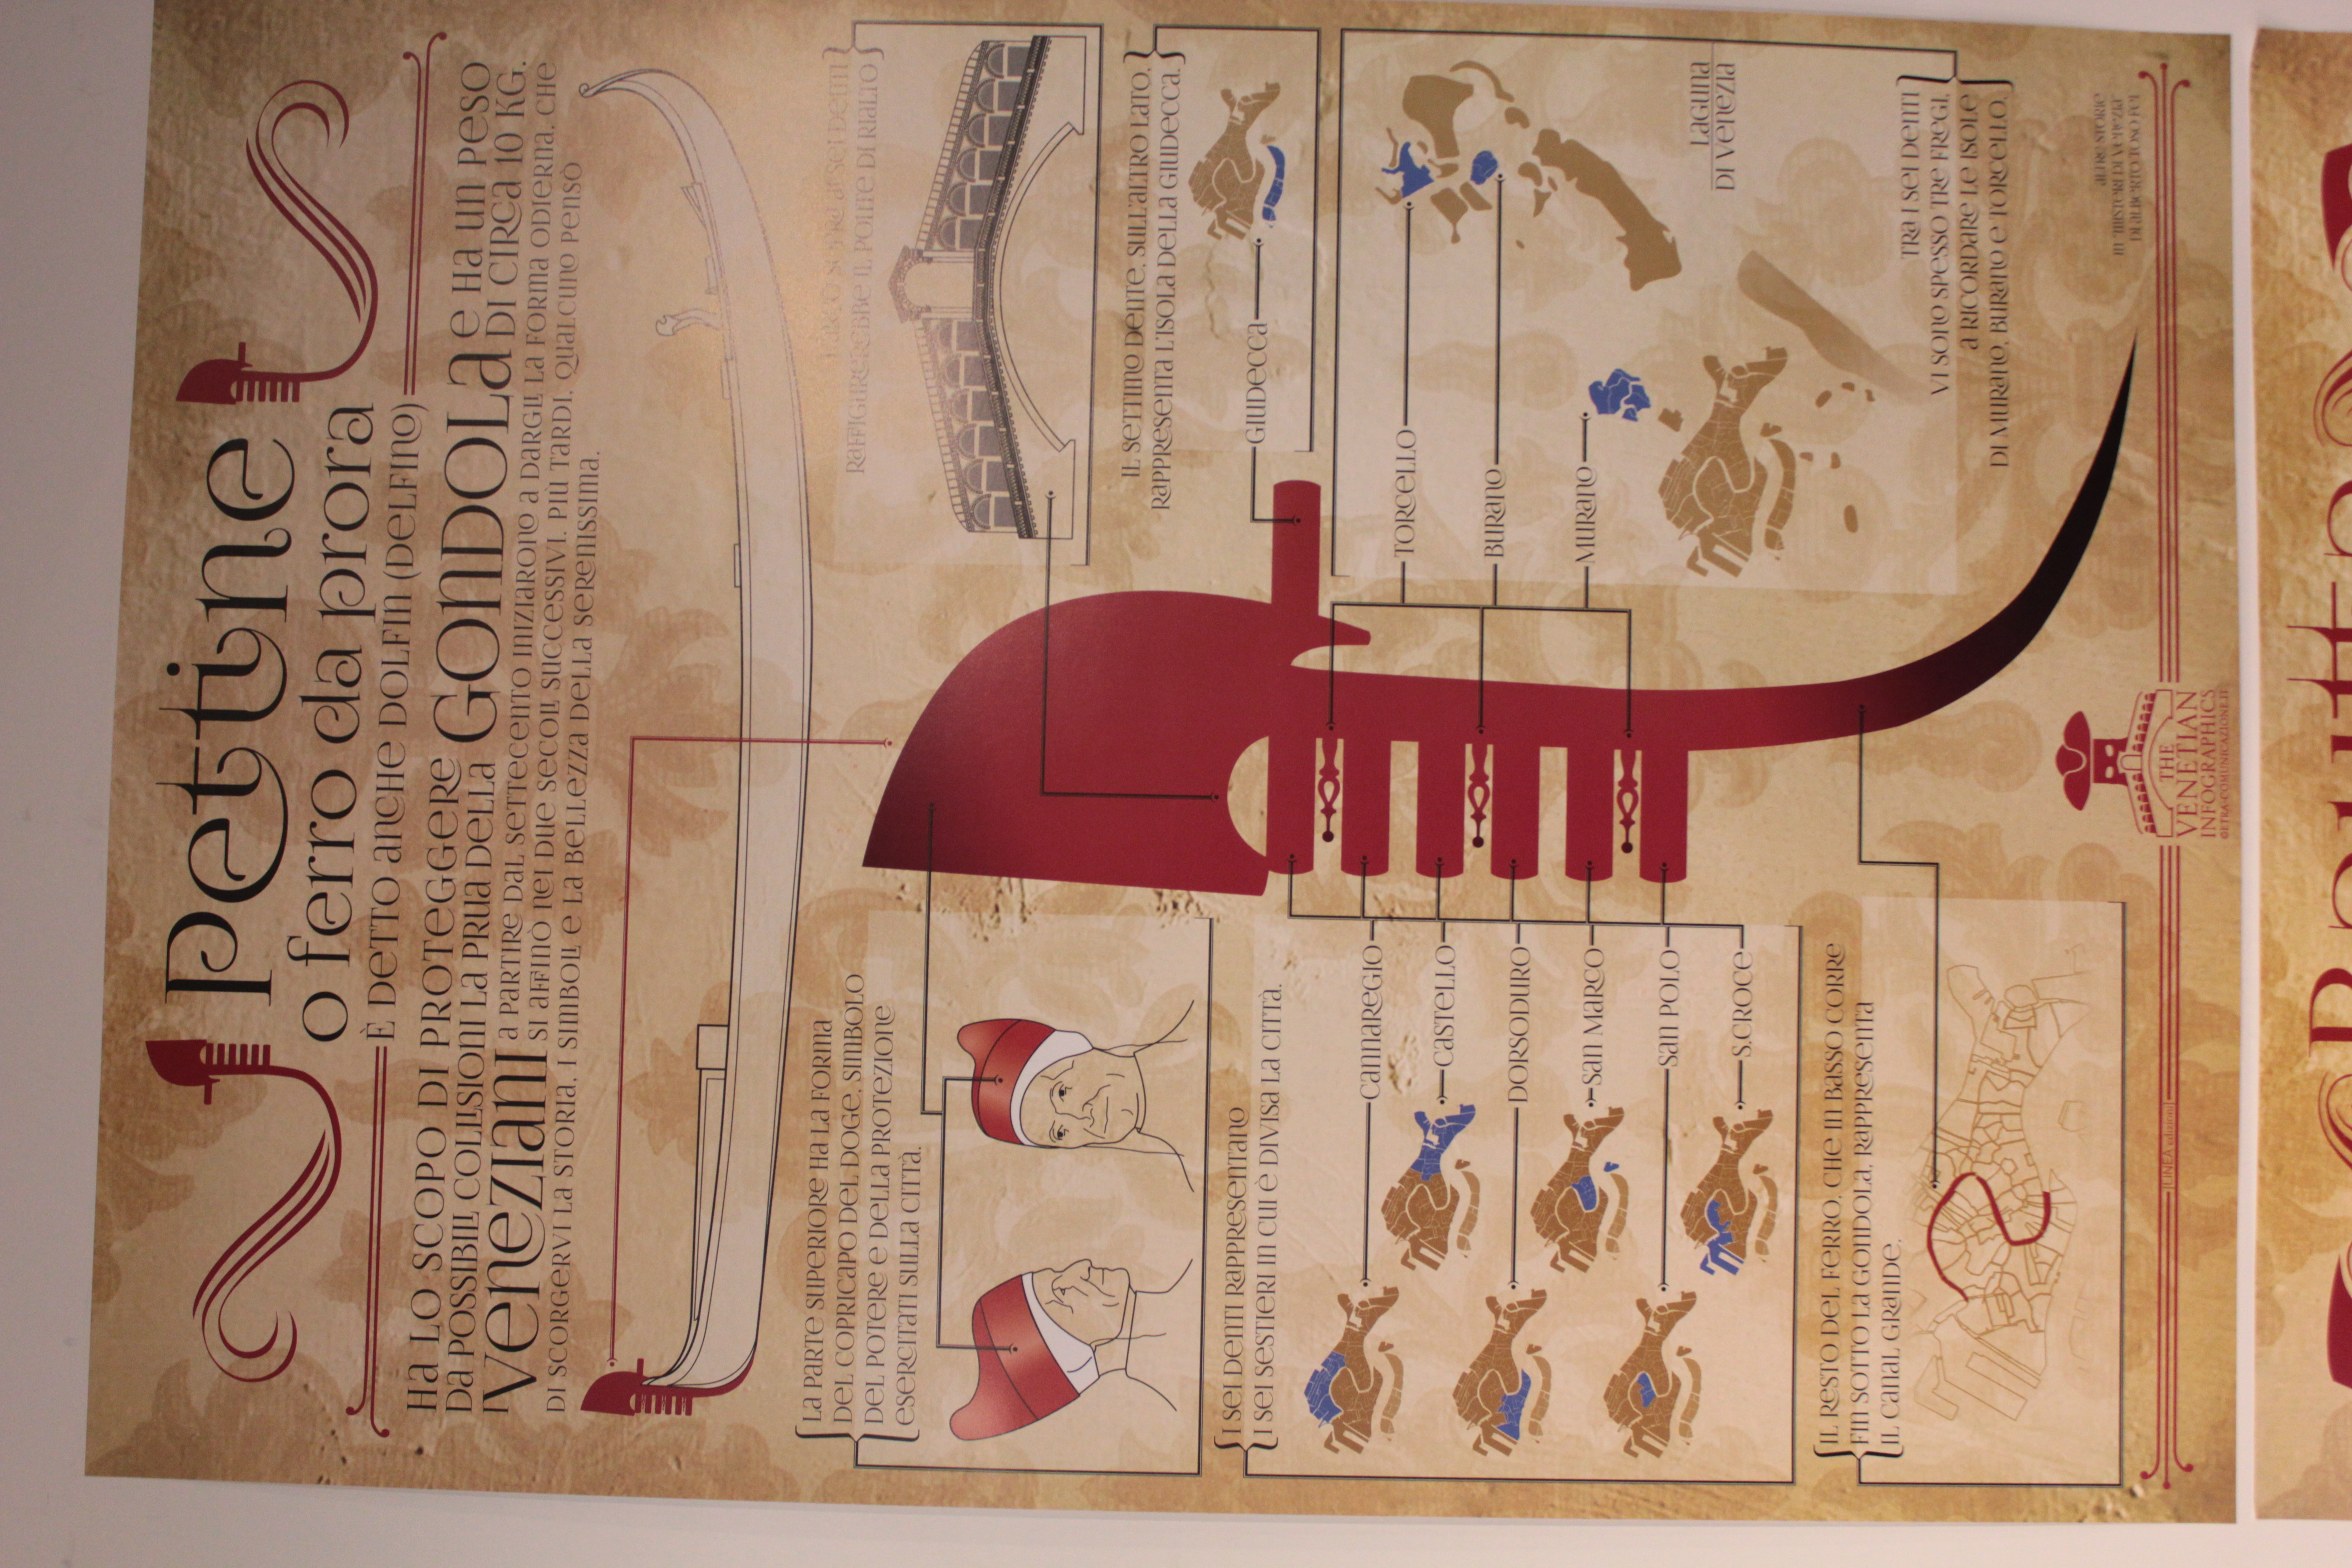 Pettine
o ferro da prora
È DETTO anche DOLFIN (DELFINO)
Ha LO SCOPO DI PROTEGGERE
Da POSSIBILI COLLISIONI La PRUA DELLA GONDOLA e Ha un PESO
DI CIRCA 10 KG.
I Veneziani
a PARTIRE DAL SETTECENTO INIZIARONO a DARGLI La FORMA ODIERNA, CHE
SI AFFINÒ NEI DUE SECOLI SUCCESSIVI. PIÙ TARDI, QUALCUNO PENSÒ
DI SCORGERVI La STORIA, I SIMBOLI e La BELLEZZA DELLA SERENISSIMA.
La PARTE SUPERIORE Ha La FORMA
DEL COPRICAPO DEL DOGE, SIMBOLO
DEL POTERE e DELLA PROTEZIONE
ESERCITATI SULLA CITTÀ.
L'ARCO SOPRA AI SEI DENTI
RAFFIGUREREBBE IL PONTE DI RIALTO
IL SETTIMO DENTE, SULL'ALTRO LATO,
RAPPRESENTA L'ISOLA DELLA GIUDECCA.
GIUDECCA
I SEI DENTI RAPPRESENTANO
I SEI SESTIERI IN CUI È DIVISA La CITTÀ.
CANNAREGIO
CASTELLO
DORSODURO
SAN MARCO
SAN POLO
S.CROCE
TORCELLO
BURANO
MURANO
Laguna
DI Venezia
TRA I SEI DENTI
VI SONO SPESSO TRE FREGI,
a RICORDARE LE ISOLE
DI MURANO, BURANO e TORCELLO.
IL RESTO DEL FERRO, CHE IN BASSO CORRE
FIN SOTTO La GONDOLA, RAPPRESENTA
IL CANAL GRANDE.
ALTRE STORIE
IN "MISTERI DI VENEZIA"
DI ALBERTO TOSO FEI
THE
VENETIAN
INFOGRAPHICS
©ETRA-COMUNICAZIONE.IT